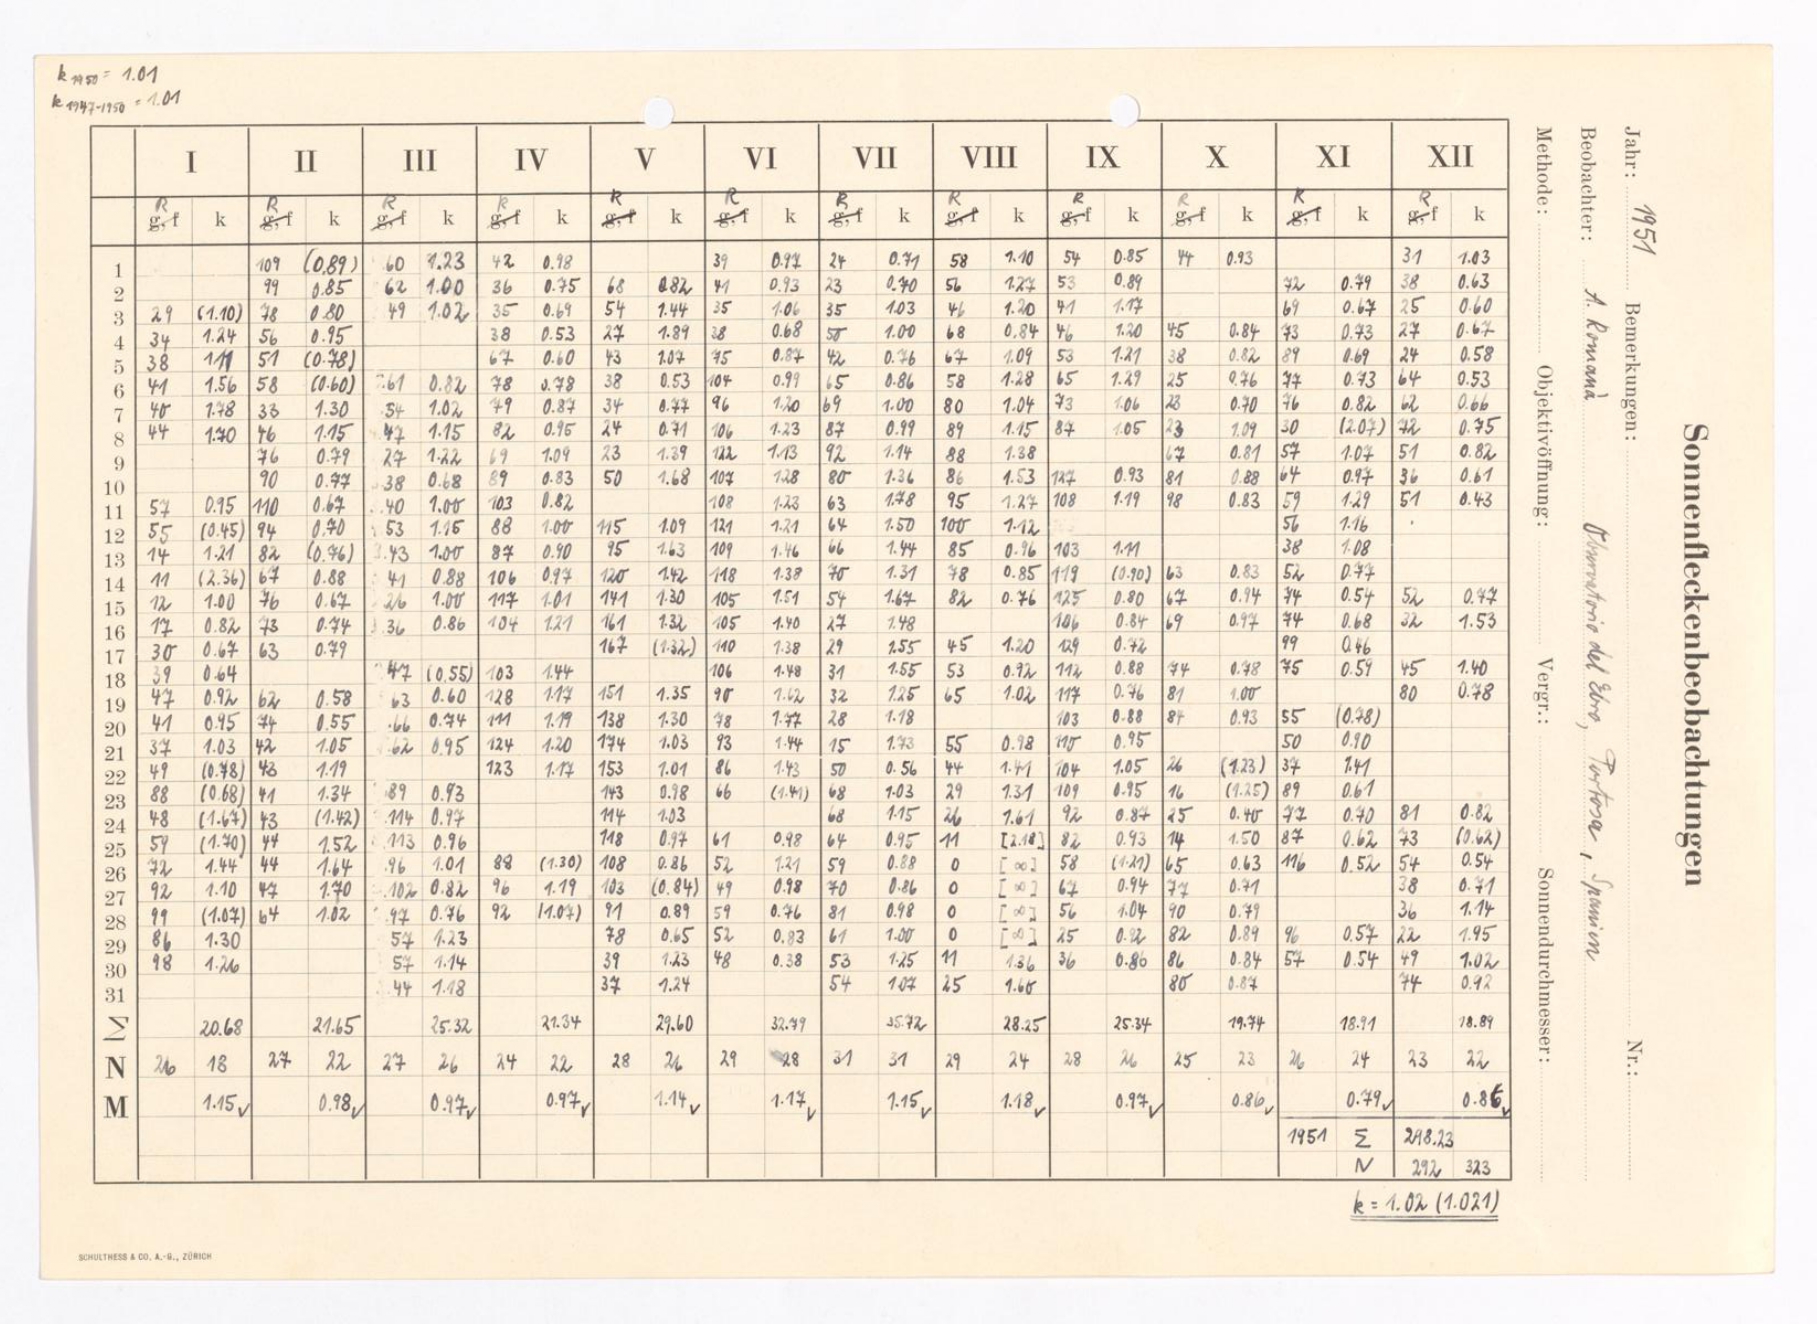 k 1950 = 1.01
k 1947-1950 = 1.01
I II III IV V VI VII VIII IX X XI XII
R R R R R R R R R R R R
g, f k g, f k g, f k g, f k g, f k g, f k g, f k g, f k g, f k g, f k g, f k g, f k
1 109 (0.89) 60 1.23 42 0.98 39 0.97 24 0.71 58 1.10 54 0.85 44 0.93 31 1.03
2 99 0.85 62 1.00 36 0.75 68 0.82 41 0.93 23 0.70 56 1.27 53 0.89 72 0.79 38 0.63
3 29 (1.10) 78 0.80 49 1.02 35 0.69 54 1.44 35 1.06 35 1.03 46 1.20 41 1.17 69 0.67 25 0.60
4 34 1.24 56 0.95 38 0.53 27 1.89 38 0.68 50 1.00 68 0.84 46 1.20 45 0.84 73 0.73 27 0.67
5 38 1.11 51 (0.78) 67 0.60 43 1.07 75 0.87 42 0.76 67 1.09 53 1.21 38 0.82 89 0.69 24 0.58
6 41 1.56 58 (0.60) 61 0.82 78 0.78 38 0.53 104 0.99 65 0.86 58 1.28 65 1.29 25 0.76 77 0.73 64 0.53
7 40 1.78 33 1.30 54 1.02 79 0.87 34 0.77 96 1.20 69 1.00 80 1.04 73 1.06 23 0.70 76 0.82 62 0.66
8 44 1.70 46 1.15 47 1.15 82 0.95 24 0.71 106 1.23 87 0.99 89 1.15 87 1.05 23 1.09 30 (2.07) 72 0.75
9 76 0.79 27 1.22 69 1.09 23 1.39 122 1.13 92 1.14 88 1.38 67 0.81 57 1.07 51 0.82
10 90 0.77 38 0.68 89 0.83 50 1.68 107 1.28 80 1.36 86 1.53 127 0.93 81 0.88 64 0.97 36 0.61
11 57 0.95 110 0.67 40 1.00 103 0.82 108 1.23 63 1.78 95 1.27 108 1.19 98 0.83 59 1.29 51 0.43
12 55 (0.45) 94 0.70 53 1.15 88 1.00 115 1.09 121 1.21 64 1.50 100 1.12 56 1.16
13 14 1.21 82 (0.76) 43 1.00 87 0.90 95 1.63 109 1.46 66 1.44 85 0.96 103 1.11 38 1.08
14 11 (2.36) 67 0.88 41 0.88 106 0.97 120 1.42 118 1.38 70 1.31 78 0.85 119 (0.90) 63 0.83 52 0.77
15 12 1.00 76 0.67 26 1.00 117 1.01 141 1.30 105 1.51 54 1.67 82 0.76 125 0.80 67 0.94 74 0.54 52 0.77
16 17 0.82 73 0.74 36 0.86 104 1.21 161 1.32 105 1.40 27 1.48 106 0.84 69 0.97 74 0.68 32 1.53
17 30 0.67 63 0.79 167 (1.32) 110 1.38 29 1.55 45 1.20 129 0.72 99 0.46
18 39 0.64 47 (0.55) 103 1.44 106 1.48 31 1.55 53 0.92 112 0.88 74 0.78 75 0.59 45 1.40
19 47 0.92 62 0.58 63 0.60 128 1.17 151 1.35 90 1.62 32 1.25 65 1.02 117 0.76 81 1.00 80 0.78
20 41 0.95 74 0.55 66 0.74 111 1.19 138 1.30 78 1.77 28 1.18 103 0.88 84 0.93 55 (0.78)
21 37 1.03 42 1.05 62 0.95 124 1.20 174 1.03 93 1.44 15 1.73 55 0.98 110 0.95 50 0.90
22 49 (0.78) 43 1.19 123 1.17 153 1.01 86 1.43 50 0.56 44 1.41 104 1.05 26 (1.23) 37 1.41
23 88 (0.68) 41 1.34 89 0.93 143 0.98 66 (1.41) 68 1.03 29 1.31 109 0.95 16 (1.25) 89 0.61
24 48 (1.67) 43 (1.42) 114 0.97 114 1.03 68 1.15 26 1.61 92 0.87 25 0.40 77 0.70 81 0.82
25 59 (1.70) 44 1.52 113 0.96 118 0.97 61 0.98 64 0.95 11 [2.18] 82 0.93 14 1.50 87 0.62 73 (0.62)
26 72 1.44 44 1.64 96 1.01 88 (1.30) 108 0.86 52 1.21 59 0.88 0 [∞] 58 (1.21) 65 0.63 116 0.52 54 0.54
27 92 1.10 47 1.70 102 0.82 96 1.19 103 (0.84) 49 0.98 70 0.86 0 [∞] 67 0.94 77 0.71 38 0.71
28 99 (1.07) 64 1.02 97 0.76 92 (1.07) 91 0.89 59 0.76 81 0.98 0 [∞] 56 1.04 90 0.79 36 1.14
29 86 1.30 57 1.23 78 0.65 52 0.83 61 1.00 0 [∞] 25 0.92 82 0.89 96 0.57 22 1.95
30 98 1.26 57 1.14 39 1.23 48 0.38 53 1.25 11 1.36 36 0.86 86 0.84 57 0.54 49 1.02
31 44 1.18 37 1.24 54 1.07 25 1.60 80 0.87 74 0.92
Σ 20.68 21.65 25.32 21.34 29.60 32.79 35.72 28.25 25.34 19.74 18.91 18.89
N 26 18 27 22 27 26 24 22 28 26 29 28 31 31 29 24 28 26 25 23 26 24 23 22
M 1.15✓ 0.98✓ 0.97✓ 0.97✓ 1.14✓ 1.17✓ 1.15✓ 1.18✓ 0.97✓ 0.86✓ 0.79✓ 0.86✓
1951 Σ 298.23
N 292 323
k = 1.02 (1.021)
SCHULTHESS & CO. A.-G., ZÜRICH
Sonnenfleckenbeobachtungen
Jahr: 1951 Bemerkungen: Nr.:
Beobachter: A. Romaná Observatorio del Ebro, Tortosa, Spanien
Methode: Objektivöffnung: Vergr.: Sonnendurchmesser: